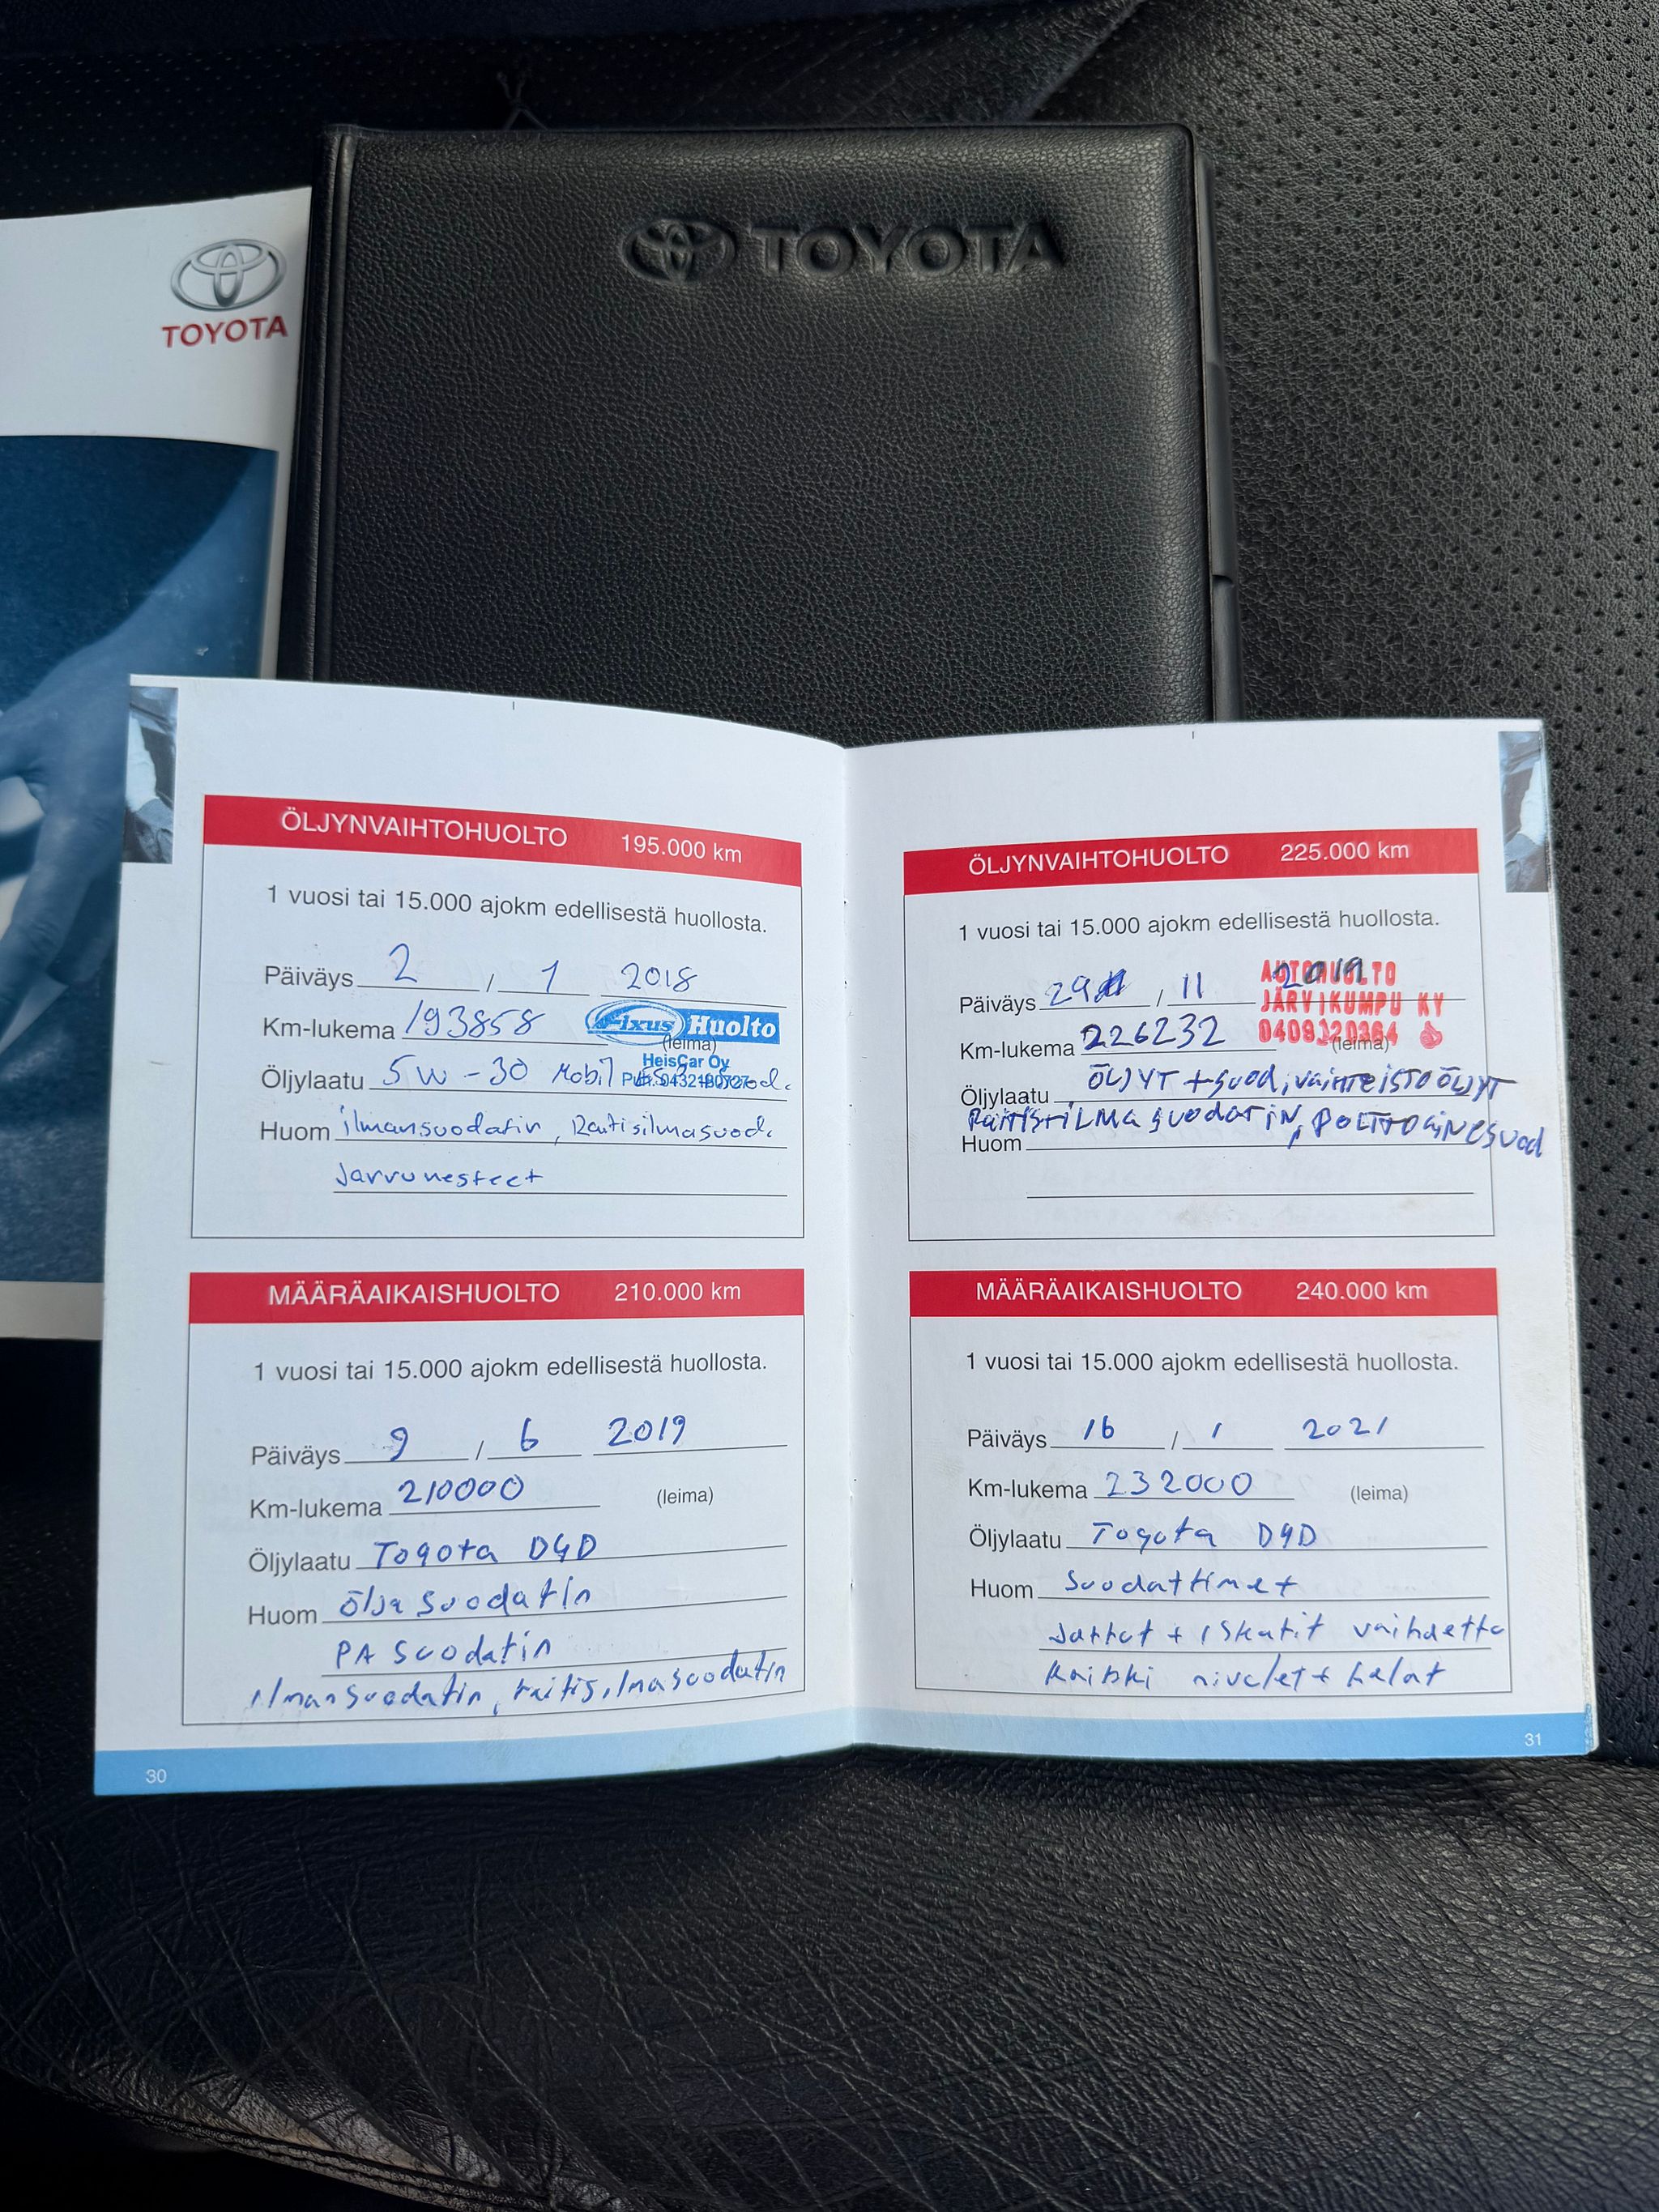 TOYOTA
TOYOTA
ÖLJYNVAIHTOHUOLTO 195.000 km
1 vuosi tai 15.000 ajokm edellisestä huollosta.
Päiväys 2 / 1 2018
Km-lukema 193858
Fixus Huolto
(leima)
HeisCar Oy
Öljylaatu 5W-30 Mobil
Huom ilmansuodatin, Raitisilmasuod.
Jarrunesteet
MÄÄRÄAIKAISHUOLTO 210.000 km
1 vuosi tai 15.000 ajokm edellisestä huollosta.
Päiväys 9 / 6 2019
Km-lukema 210000 (leima)
Öljylaatu Toyota D4D
Huom öljysuodatin
PA suodatin
ilmansuodatin, raitisilmasuodatin
30
ÖLJYNVAIHTOHUOLTO 225.000 km
1 vuosi tai 15.000 ajokm edellisestä huollosta.
Päiväys 29 / 11 2019
AUTOHUOLTO
JÄRVIKUMPU KY
Km-lukema 226232 (leima)
Öljylaatu ÖLJYT + suod, vaihteistoÖLJYT
RAITISILMA suodatin, POLTTOAINESuod
Huom
MÄÄRÄAIKAISHUOLTO 240.000 km
1 vuosi tai 15.000 ajokm edellisestä huollosta.
Päiväys 16 / 1 2021
Km-lukema 232000 (leima)
Öljylaatu Toyota D4D
Huom Suodattimet
Jarrut + iskarit vaihdettu
Kaikki nivelet + helat
31